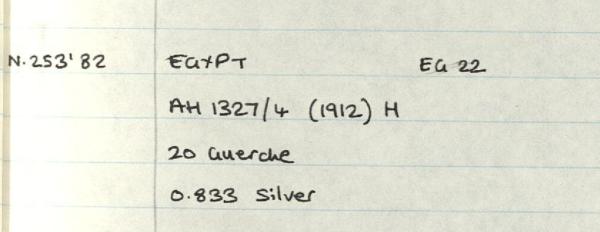 N.253'82 EGYPT EG 22
AH 1327/4 (1912) H
20 Guerche
0.833 Silver